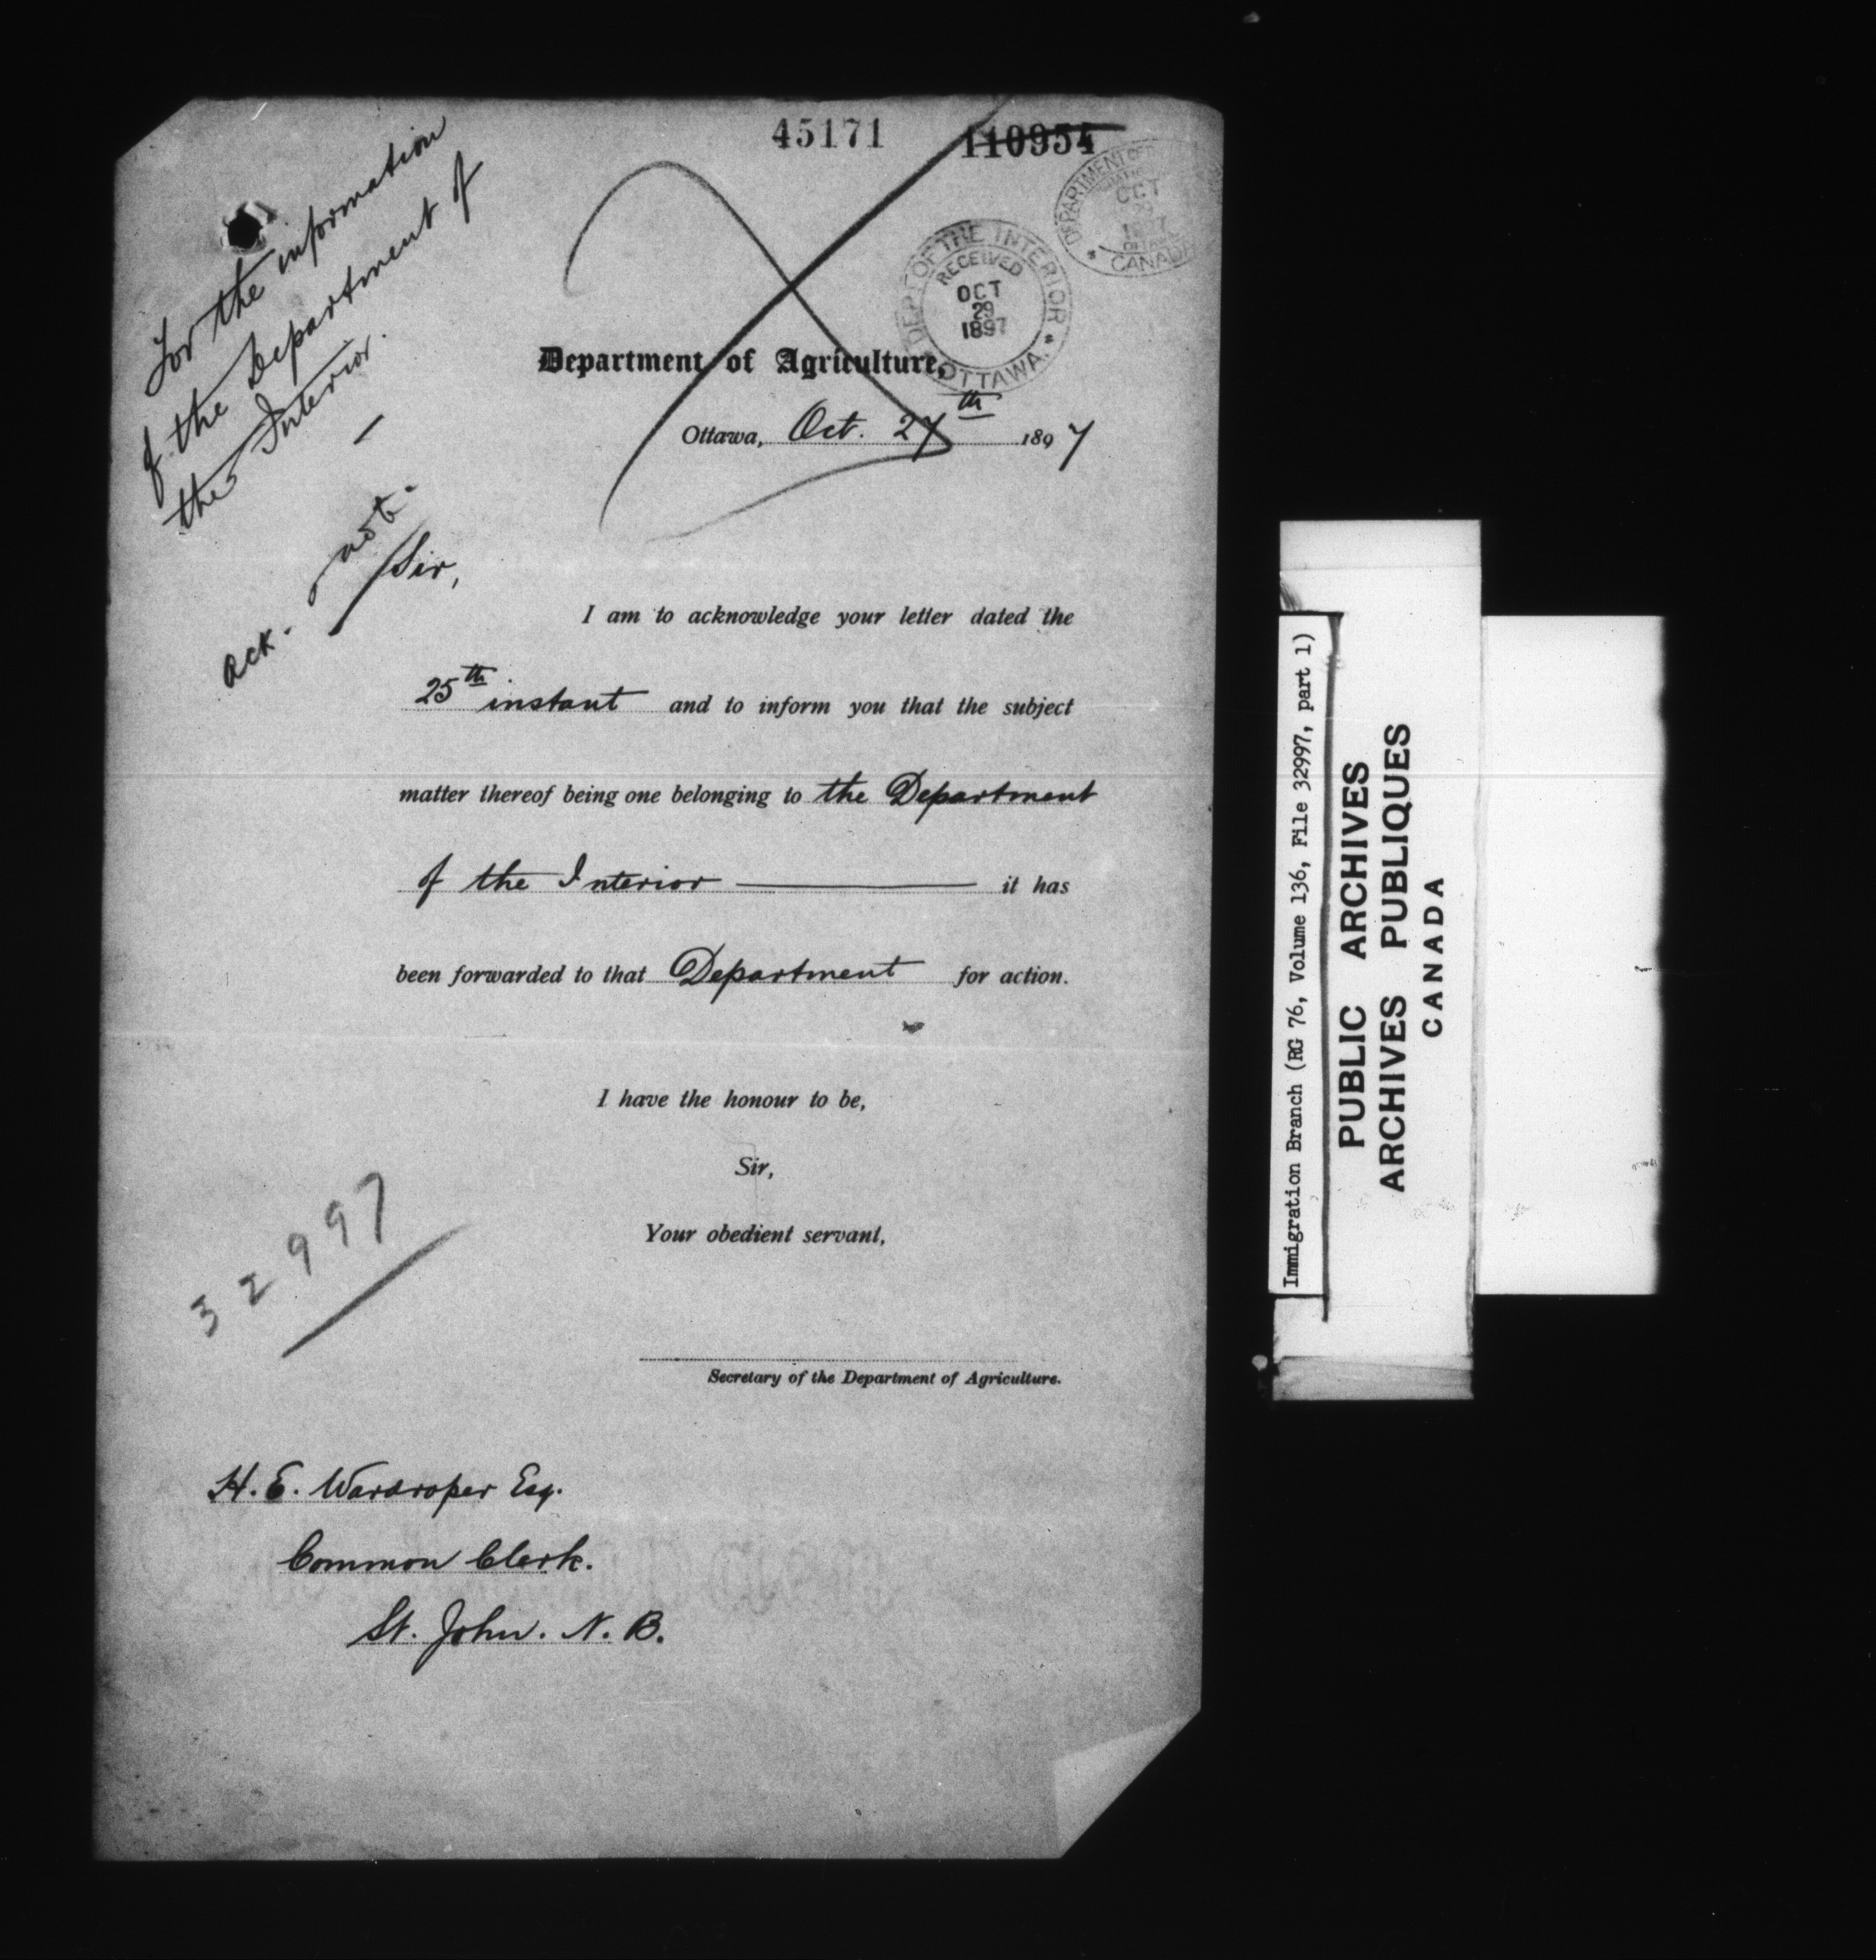 45171 110954
For the information
of the Department of
the Interior.
DEPT OF THE INTERIOR
RECEIVED
OCT
29
1897
OTTAWA.
DEPARTMENT OF
OCT
1897
OTTAWA
CANADA
Department of Agriculture,
Ottawa, Oct. 27th 1897
ack. not.
Sir,
I am to acknowledge your letter dated the
25th instant and to inform you that the subject
matter thereof being one belonging to the Department
of the Interior it has
been forwarded to that Department for action.
I have the honour to be,
Sir,
Your obedient servant,
32997
Secretary of the Department of Agriculture.
H. E. Wardroper Esq.
Common Clerk.
St. John. N. B.
Immigration Branch (RG 76, Volume 136, File 32997, part 1)
PUBLIC ARCHIVES
ARCHIVES PUBLIQUES
CANADA